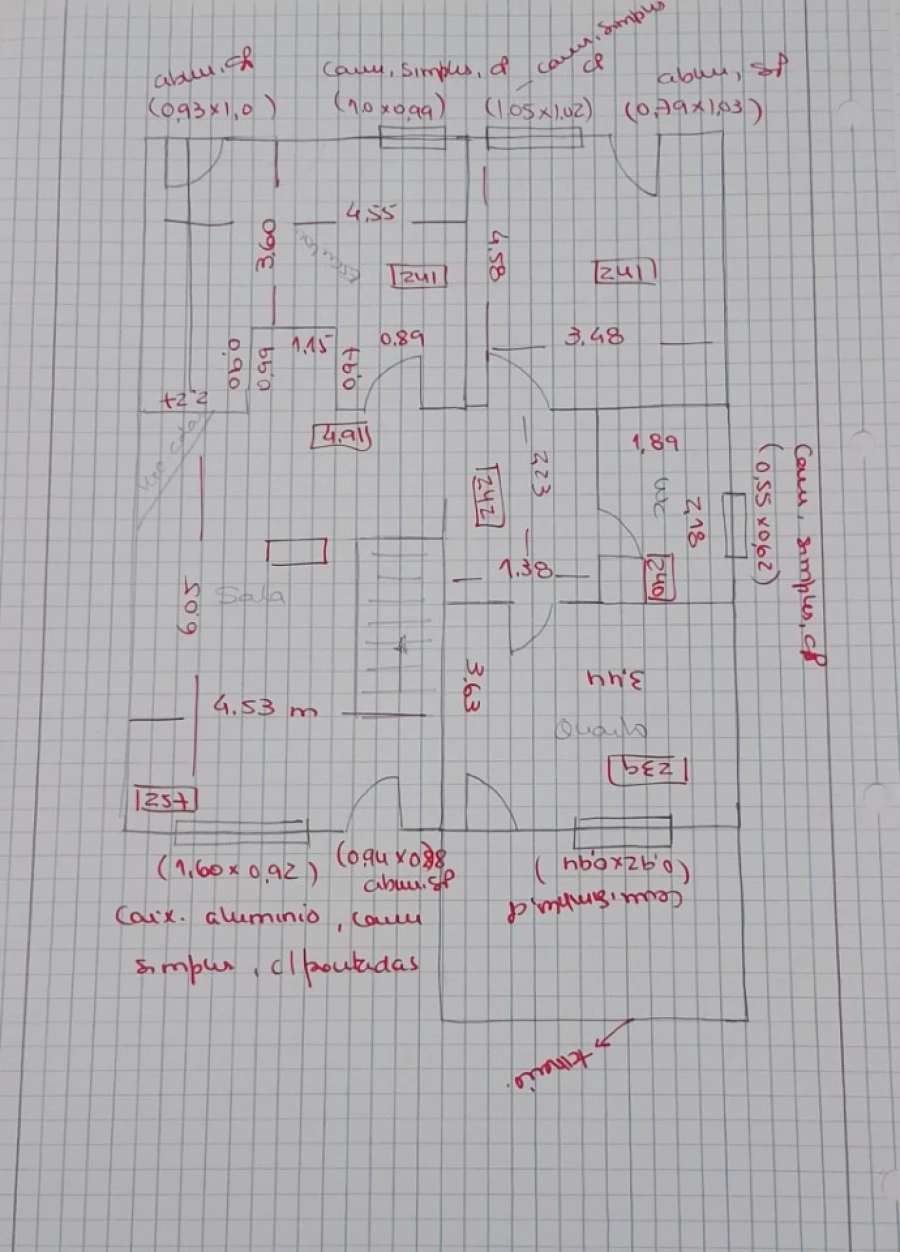 abrir, cp
corr, simples, cp
corr, simples
cp
abrir, sp
(0,93×1,0)
(1.0×0,99)
(1.05×1,02)
(0,79×1,03)
4.55
3.60
4.58
241
241
0.90
0.99
1.15
0.89
3.48
2.2+
4.91
1,89
2,23
wc
2,18
242
corr, simples, cp
(0,55×0,62)
1.38
240
Sala
6.05
3.63
3.44
4.53 m
Quarto
239
257
(1,60×0,92)
(0,94×0,88)
(0,92×0,94)
abrir.sp
corr.simples,cp
Caix. aluminio, corr
simples, c/portadas
terreio